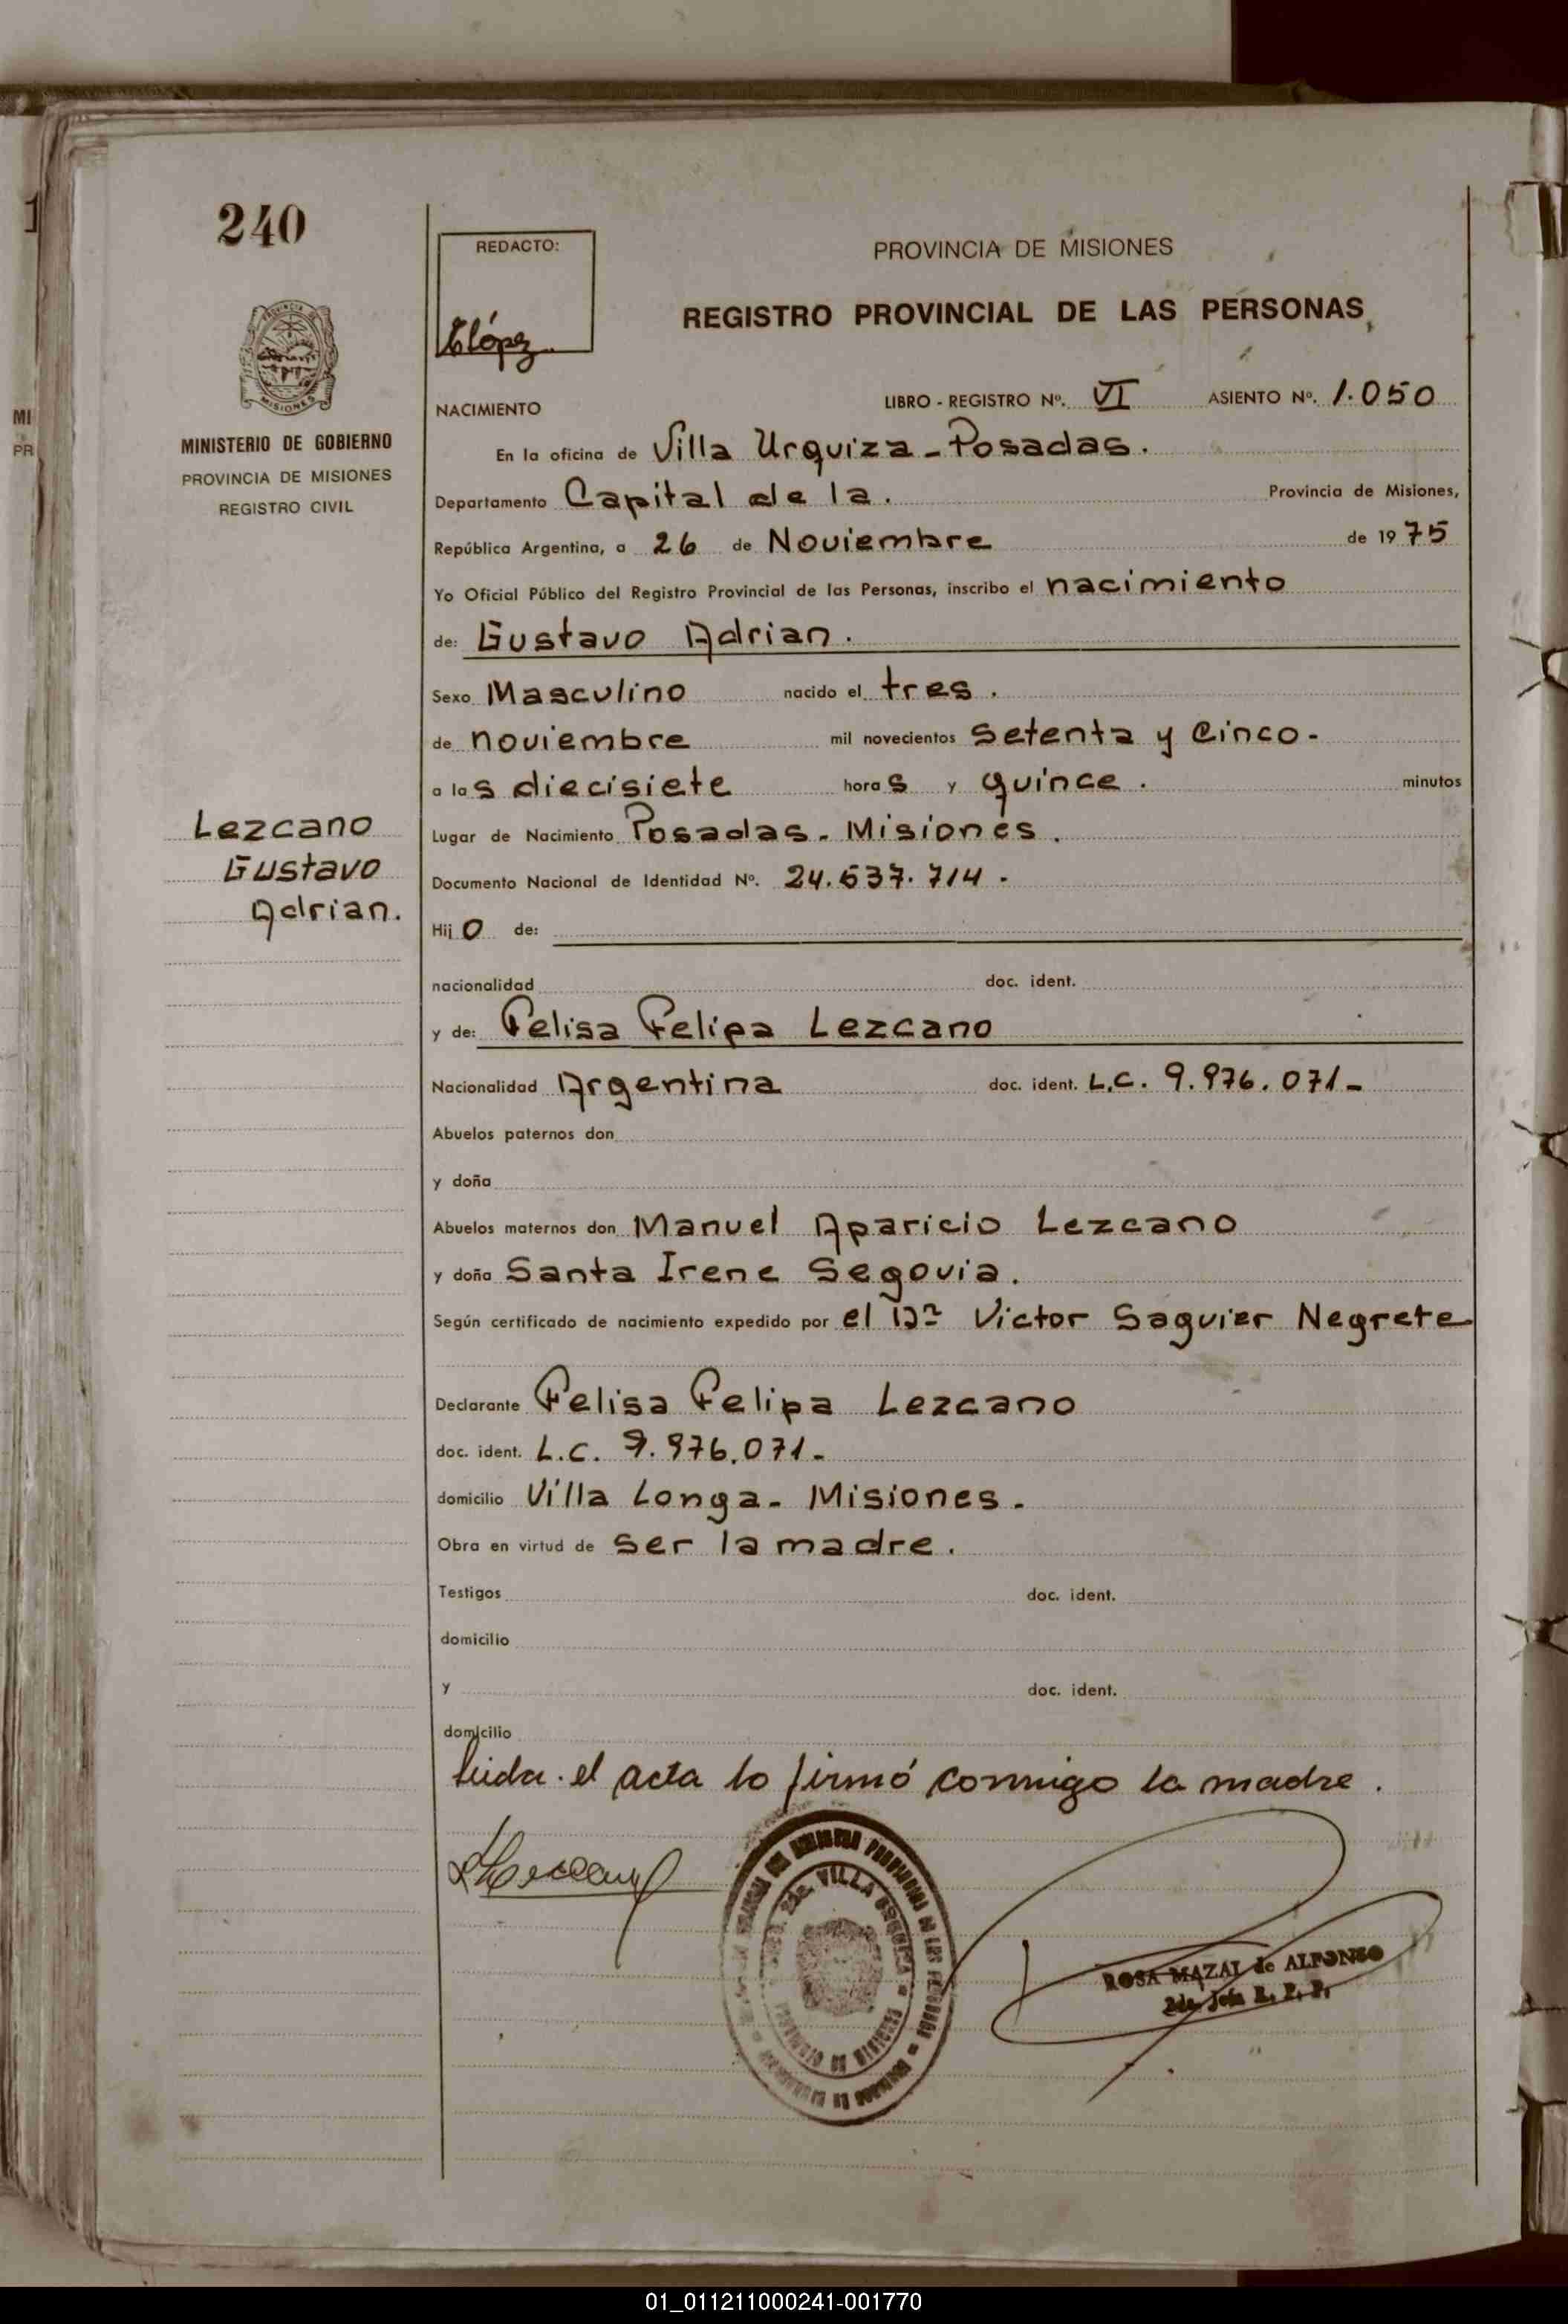 240
REDACTO:
López
PROVINCIA DE MISIONES
REGISTRO PROVINCIAL DE LAS PERSONAS
MINISTERIO DE GOBIERNO
PROVINCIA DE MISIONES
REGISTRO CIVIL
NACIMIENTO LIBRO - REGISTRO Nº. VI ASIENTO Nº. 1.050
En la oficina de Villa Urquiza - Posadas.
Departamento Capital de la. Provincia de Misiones,
República Argentina, a 26 de Noviembre de 1975
Yo Oficial Público del Registro Provincial de las Personas, inscribo el nacimiento
de: Gustavo Adrian.
Sexo Masculino nacido el tres.
de noviembre mil novecientos setenta y cinco-
a las diecisiete horas y quince. minutos
Lezcano
Gustavo
Adrian.
Lugar de Nacimiento Posadas - Misiones.
Documento Nacional de Identidad Nº. 24.537.714.
Hijo de:
nacionalidad doc. ident.
y de: Felisa Felipa Lezcano
Nacionalidad Argentina doc. ident. L.C. 9.976.071-
Abuelos paternos don
y doña
Abuelos maternos don Manuel Aparicio Lezcano
y doña Santa Irene Segovia.
Según certificado de nacimiento expedido por el Dr Victor Saguier Negrete
Declarante Felisa Felipa Lezcano
doc. ident. L.C. 9.976.071-
domicilio Villa Longa - Misiones.
Obra en virtud de ser la madre.
Testigos doc. ident.
domicilio
y doc. ident.
domicilio
Leida el acta lo firmó conmigo la madre.
VILLA URQUIZA
ROSA MAZAL de ALFONZO
2da. Jefa R. P. P.
MI
PR
01_011211000241-001770